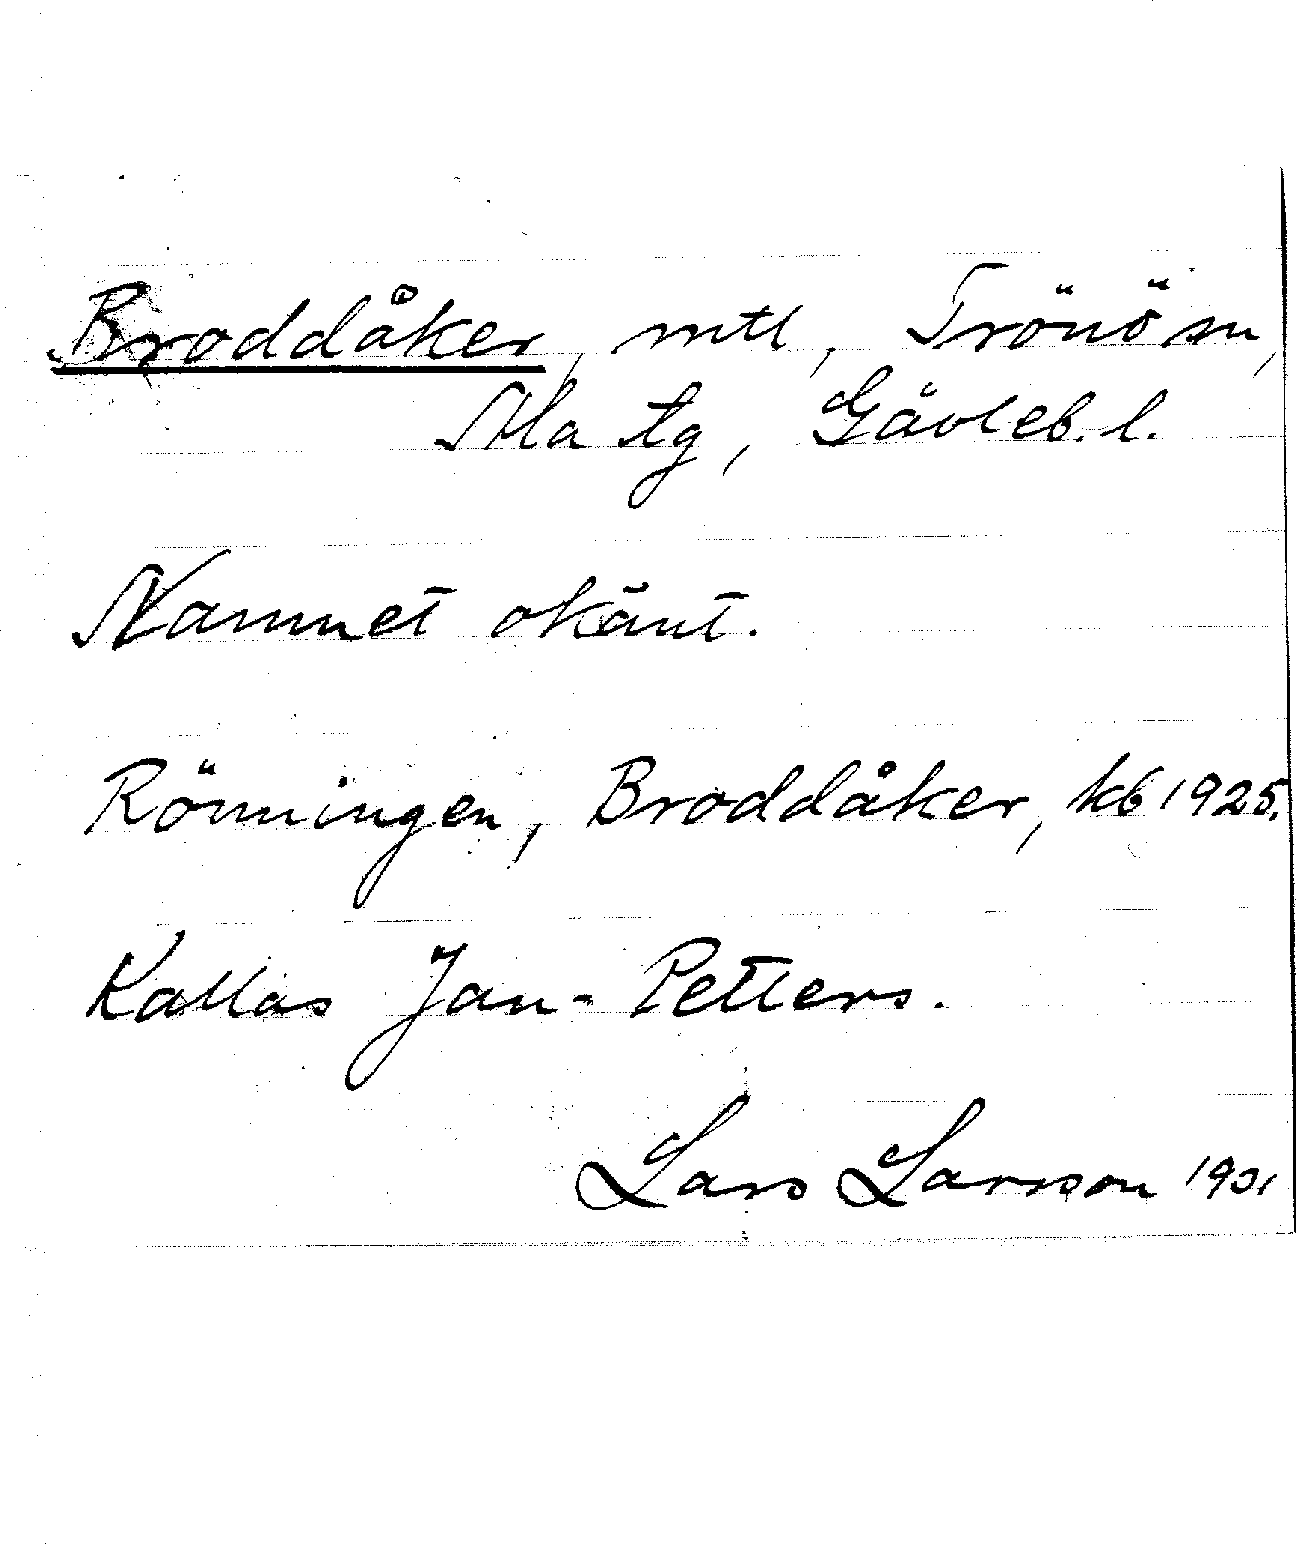 Broddåker, mtl, Trönö sn,
Ala tg, Gävleb. l.
Namnet okänt.
Rönningen, Broddåker, kb 1925.
Kallas Jan-Petters.
Lars Larsson 1931